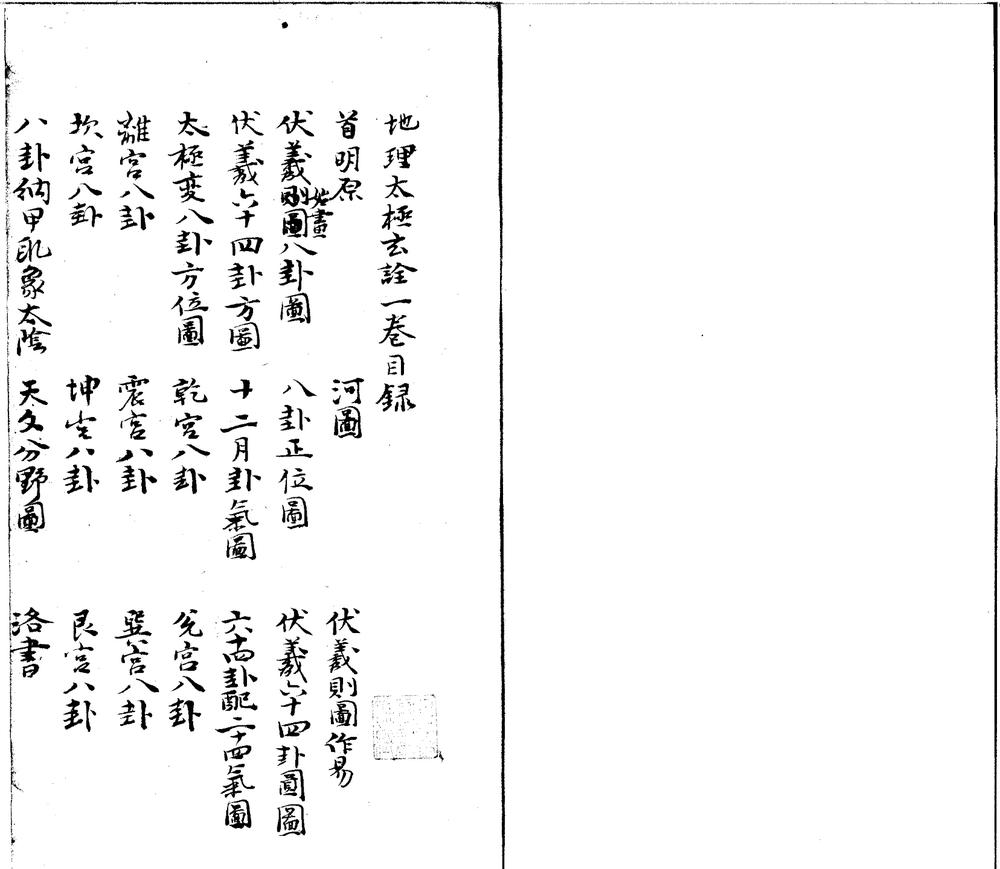 地理太極玄詮一巻目録
首明原　河圖　伏羲則圖作易
伏羲始畫八卦圖　八卦正位圖　伏羲六十四卦圓圖
伏羲六十四卦方圖　十二月卦氣圖　六十四卦配二十四氣圖
太極变八卦方位圖　乾宮八卦　兌宮八卦
離宮八卦　震宮八卦　巽宮八卦
坎宮八卦　坤宮八卦　艮宮八卦
八卦納甲㐆象太陰　天文分野圖　洛書